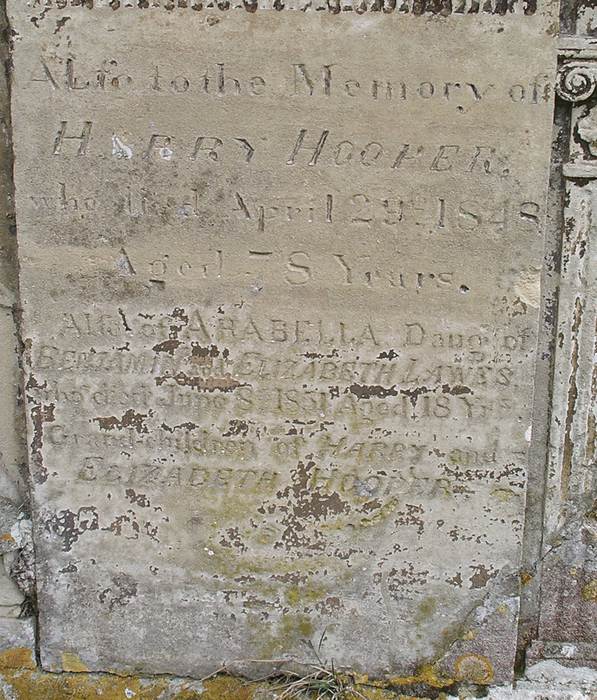 ALSO to the Memory of
HARRY HOOPER,
who died April 29th 1848
Aged 78 Years.
Also of ARABELLA Daugr of
BENJAMIN and ELIZABETH LAWES
who died June 8th 1851 Aged 18 Yrs
Grand-children of HARRY and
ELIZABETH HOOPER